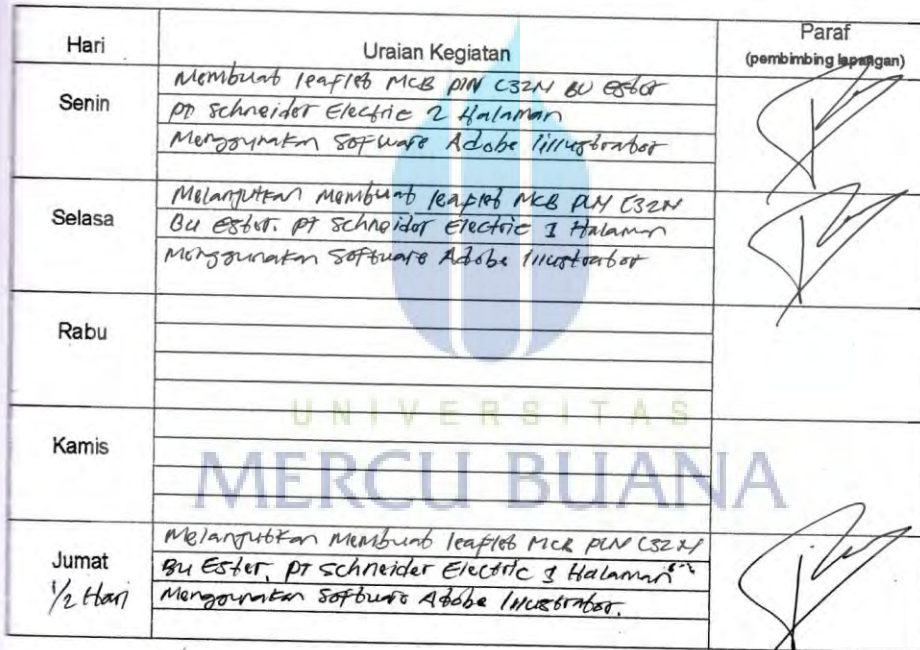 Hari
Uraian Kegiatan
Paraf
(pembimbing lapangan)
Senin
Membuat leaflet MCB PLN C32N BU Ester
PT Schneider Electric 2 Halaman
Menggunakan Software Adobe Illustrator
Selasa
Melanjutkan Membuat leaflet MCB PLN C32N
Bu Ester. PT Schneider Electric 1 Halaman
Menggunakan Software Adobe Illustrator
Rabu
UNIVERSITAS
Kamis
MERCU BUANA
Jumat
1/2 Hari
Melanjutkan Membuat leaflet MCB PLN C32N
Bu Ester, PT Schneider Electric 1 Halaman
Menggunakan Software Adobe Illustrator.